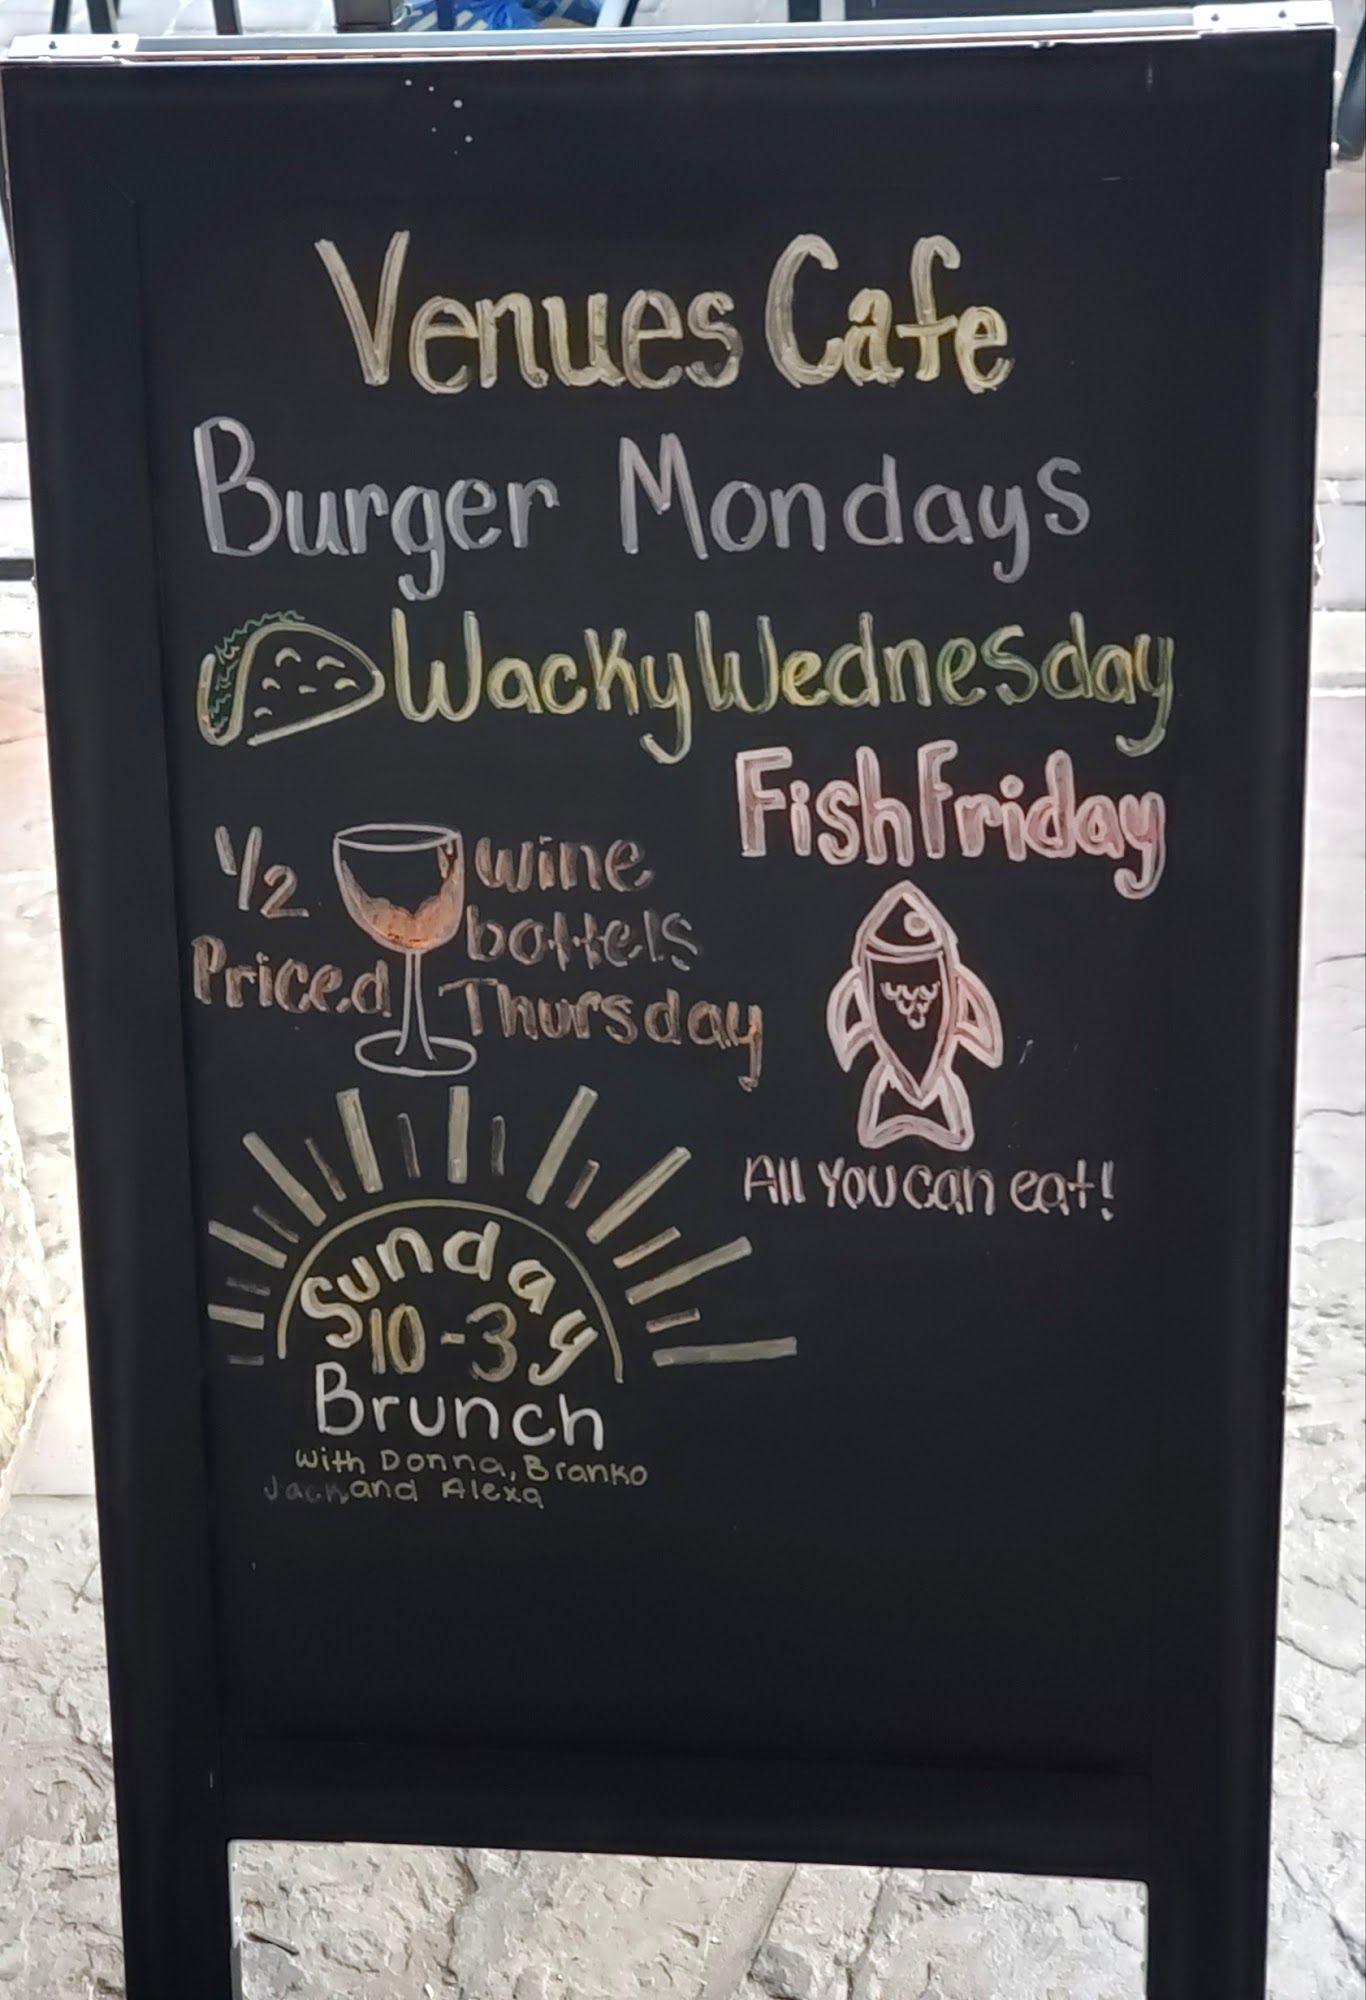 Venues Cafe
Burger Mondays
Wacky Wednesday
Fish Friday
All you can eat!
1/2 Priced
wine
bottels
Thursday
Sunday
10-3
Brunch
with Donna, Branko
Jack and Alexa